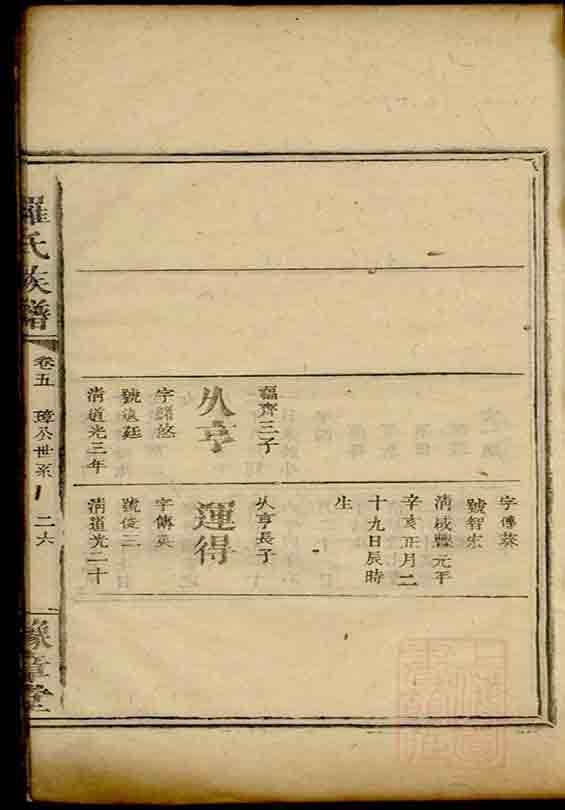 福齊三子
久亨
字緒悠
號遠廷
清道光三年
字傳棻
號智宏
清咸豐元年
辛亥正月二
十九日辰時
生
久亨長子
運得
字傳英
號俊三
清道光二十
羅氏族譜
卷五
璋公世系
二六
豫章堂